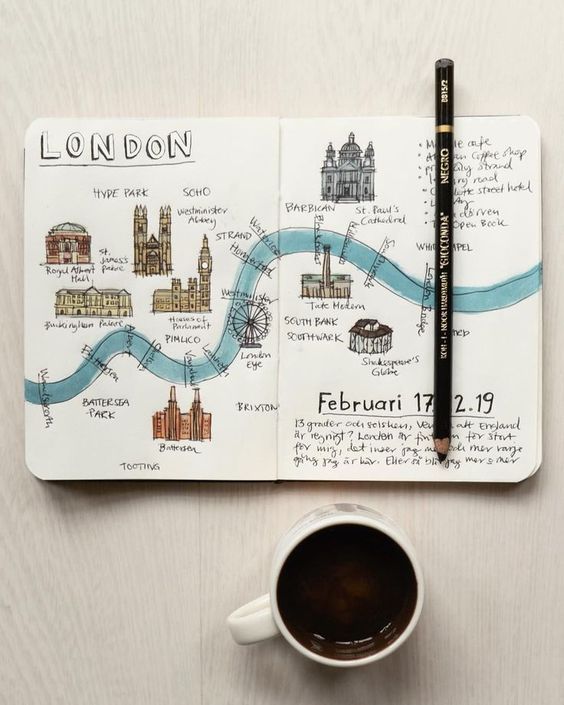 LONDON
HYDE PARK
SOHO
Westminister
Abbey
Royal Albert
Hall
St.
James's
Palace
STRAND
Hungerford
Waterloo
Buckingham Palace
Houses of
Parliament
Westminister
PIMLICO
Lambeth
Vauxhall
Chelsea
Albert
Battersea
Wandsworth
London
Eye
BATTERSEA
-PARK
Battersea
BRIXTON
TOOTING
St. Paul's
Cathedral
BARBICAN
Blackfriars
Millennium
Southwark
London Bridge
Tate Modern
SOUTH BANK
SOUTHWARK
Shakespeare's
Globe
cafe
Coffee Shop
strand
road
street hotel
Open Book
Februari 17
2.19
13 grader och solsken, Vem att England
är regnigt? London är för stort
för mig, det inser jag och mer varje
gång jag är här. Eller så jag mer & mer
KOH-I-NOOR HARDTMUTH "GIOCONDA" NEGRO
8815/2